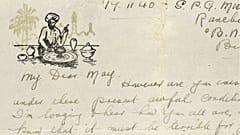 17.11.40 - S.P.G. Mis
Ranch
B.N.
Bi
My Dear May.
However are you
under these present awful condit
I'm longing to hear how you all are,
that it must be terrible for